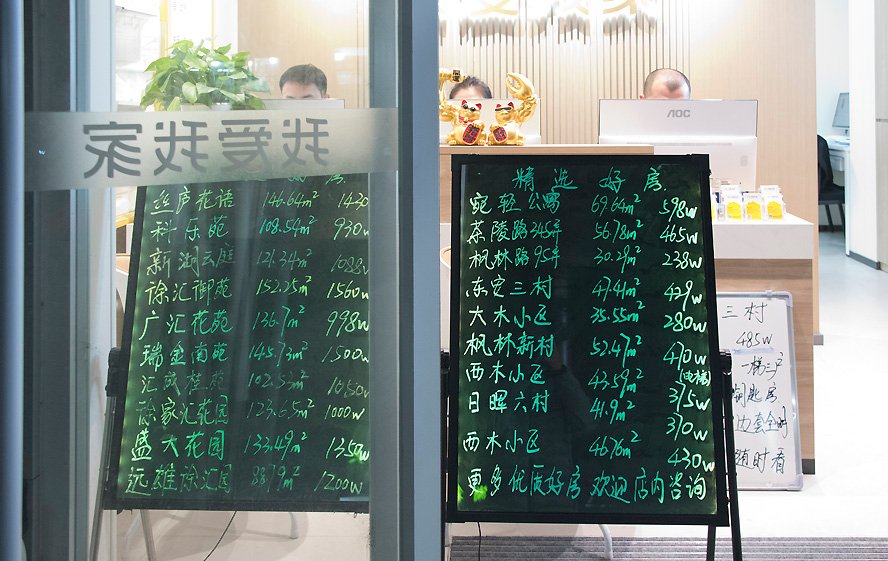 我爱我家
好房
丝庐花语 146.64m² 1420
科乐苑 108.54m² 930w
新湖云庭 121.34m² 1088w
徐汇御苑 152.25m² 1560w
广汇花苑 136.7m² 998w
瑞金南苑 145.73m² 1500w
汇成桂苑 102.53m² 1050w
徐家汇花园 123.65m² 1000w
盛大花园 133.49m² 1350w
远雄徐汇园 88.79m² 1200w
AOC
精选好房
宛轻公寓 69.64m² 598w
茶陵路345弄 56.78m² 465w
枫林路95弄 30.29m² 238w
东安三村 47.41m² 429w
大木小区 35.55m² 280w
枫林新村 52.47m² 470w
(电梯)
西木小区 43.59m² 375w
日晖六村 41.9m² 370w
西木小区 46.76m² 430w
更多优质好房 欢迎店内咨询
三村
485w
一梯三户
钥匙房
随时看